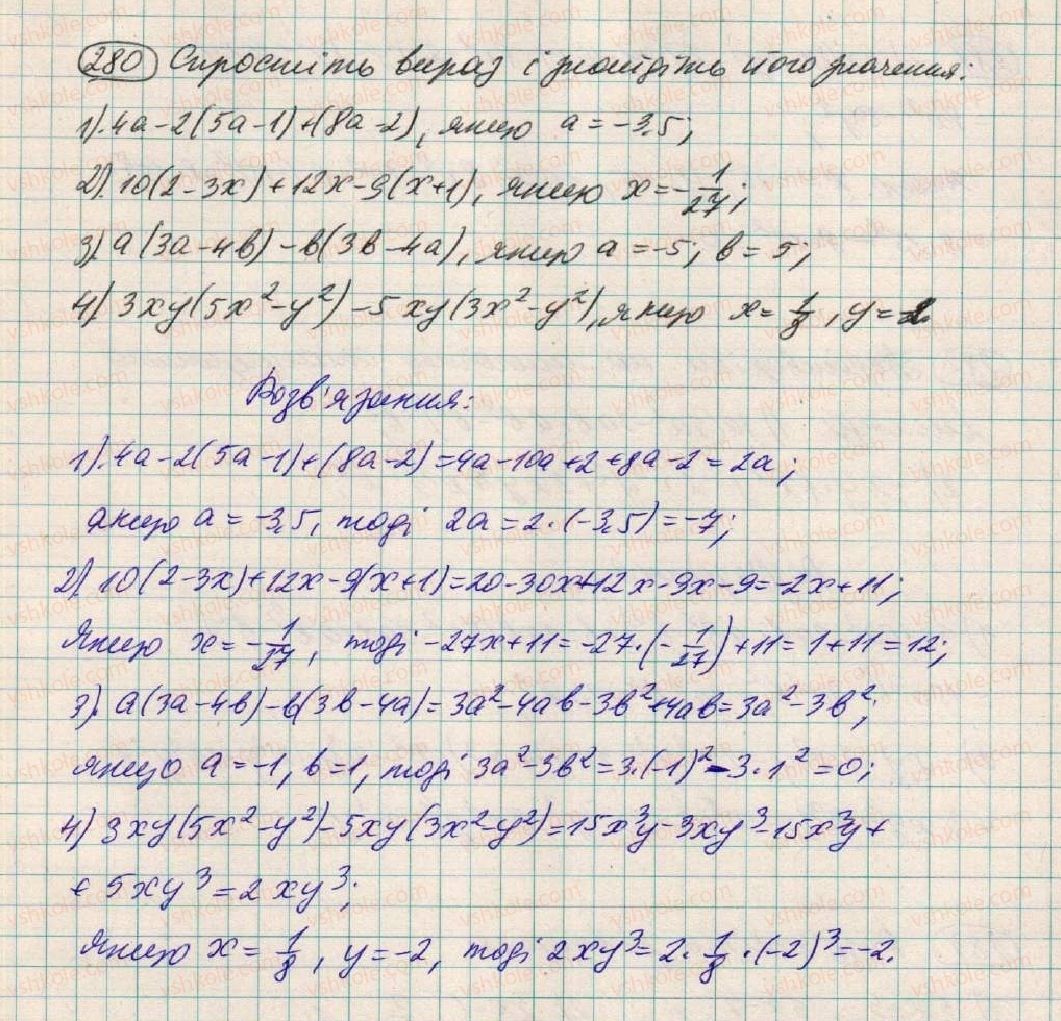 280 Спростіть вираз і знайдіть його значення:
1). 4a-2(5a-1)+(8a-2), якщо a=-3,5;
2). 10(2-3x)+12x-9(x+1), якщо x=-1/27;
3) a(3a-4b)-b(3b-4a), якщо a=-5; b=5;
4) 3xy(5x²-y²)-5xy(3x²-y²), якщо x=1/8, y=
Розв'язання:
1). 4a-2(5a-1)+(8a-2)=4a-10a+2+8a-2=2a;
якщо a=-3,5, тоді 2a=2·(-3,5)=-7;
2) 10(2-3x)+12x-9(x+1)=20-30x+12x-9x-9=-2x+11;
Якщо x=-1/27, тоді -27x+11=-27·(-1/27)+11=1+11=12;
3). a(3a-4b)-b(3b-4a)=3a²-4ab-3b²+4ab=3a²-3b²;
якщо a=-1, b=1, тоді 3a²-3b²=3·(-1)²-3·1²=0;
4) 3xy(5x²-y²)-5xy(3x²-y²)=15x³y-3xy³-15x³y+
+5xy³=2xy³;
Якщо x=1/8, y=-2, тоді 2xy³=2·1/8·(-2)³=-2.